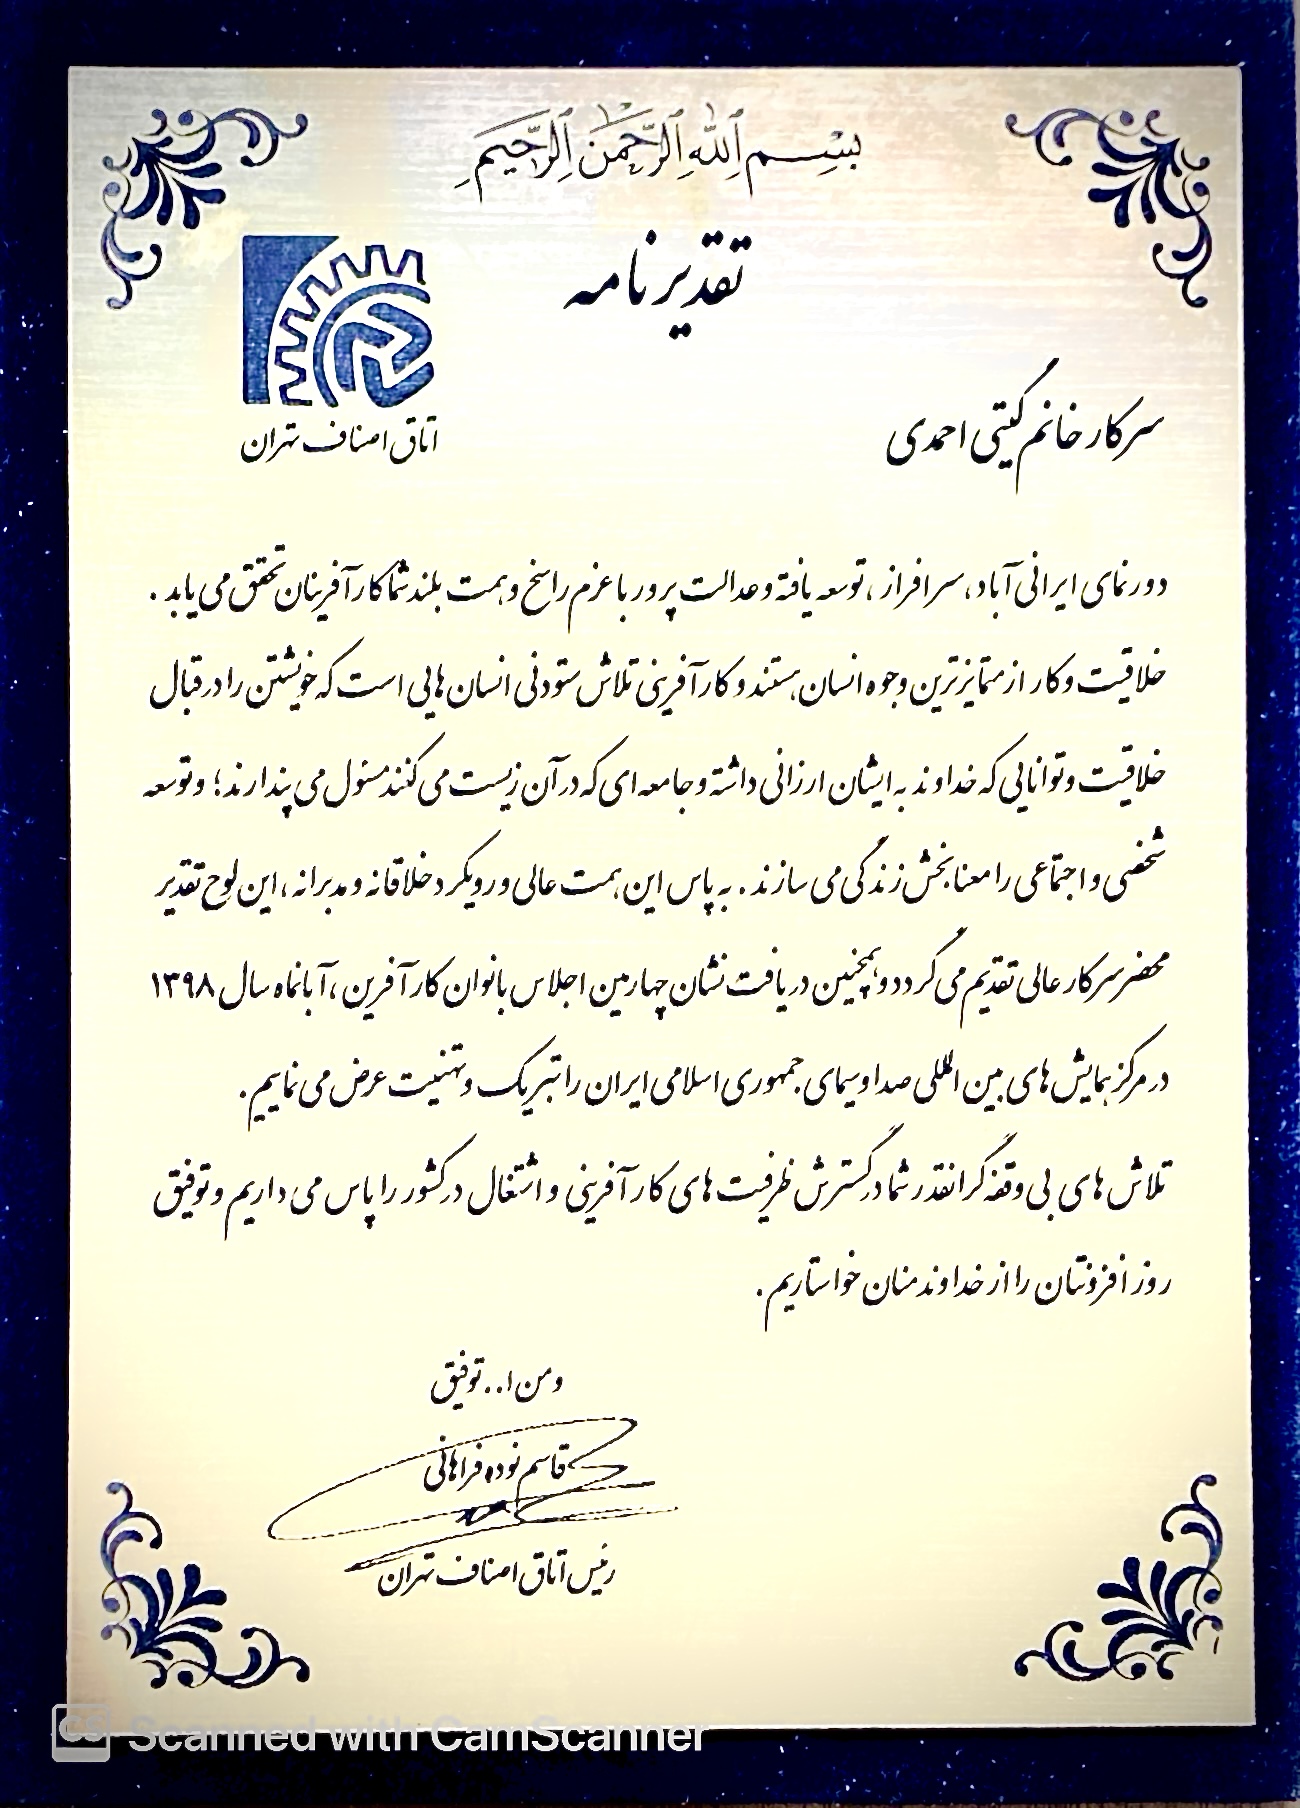 بسم الله الرحمن الرحیم
تقدیرنامه
اتاق اصناف تهران
سرکار خانم گیتی احمدی
دورنمای ایرانی آباد، سرافراز، توسعه یافته و عدالت پرور با عزم راسخ و همت بلند شما کارآفرینان تحقق می یابد.
خلاقیت و کار از متمایزترین وجوه انسان هستند و کارآفرینی تلاش ستودنی انسان هایی است که خویشتن را در قبال
خلاقیت و توانایی که خداوند به ایشان ارزانی داشته و جامعه ای که در آن زیست می کنند مسئول می پندارند؛ و توسعه
شخصی و اجتماعی را معنا بخش زندگی می سازند. به پاس این همت عالی و رویکرد خلاقانه و مدبرانه، این لوح تقدیر
محضر سرکار عالی تقدیم می گردد و همچنین دریافت نشان چهارمین اجلاس بانوان کارآفرین، آبانماه سال ۱۳۹۸
در مرکز همایش های بین المللی صدا و سیمای جمهوری اسلامی ایران را تبریک و تهنیت عرض می نماییم.
تلاش های بی وقفه گرانقدر شما در گسترش ظرفیت های کارآفرینی و اشتغال در کشور را پاس می داریم و توفیق
روز افزونتان را از خداوند منان خواستاریم.
و من ا.. توفیق
قاسم نوده فراهانی
رئیس اتاق اصناف تهران
CS Scanned with CamScanner